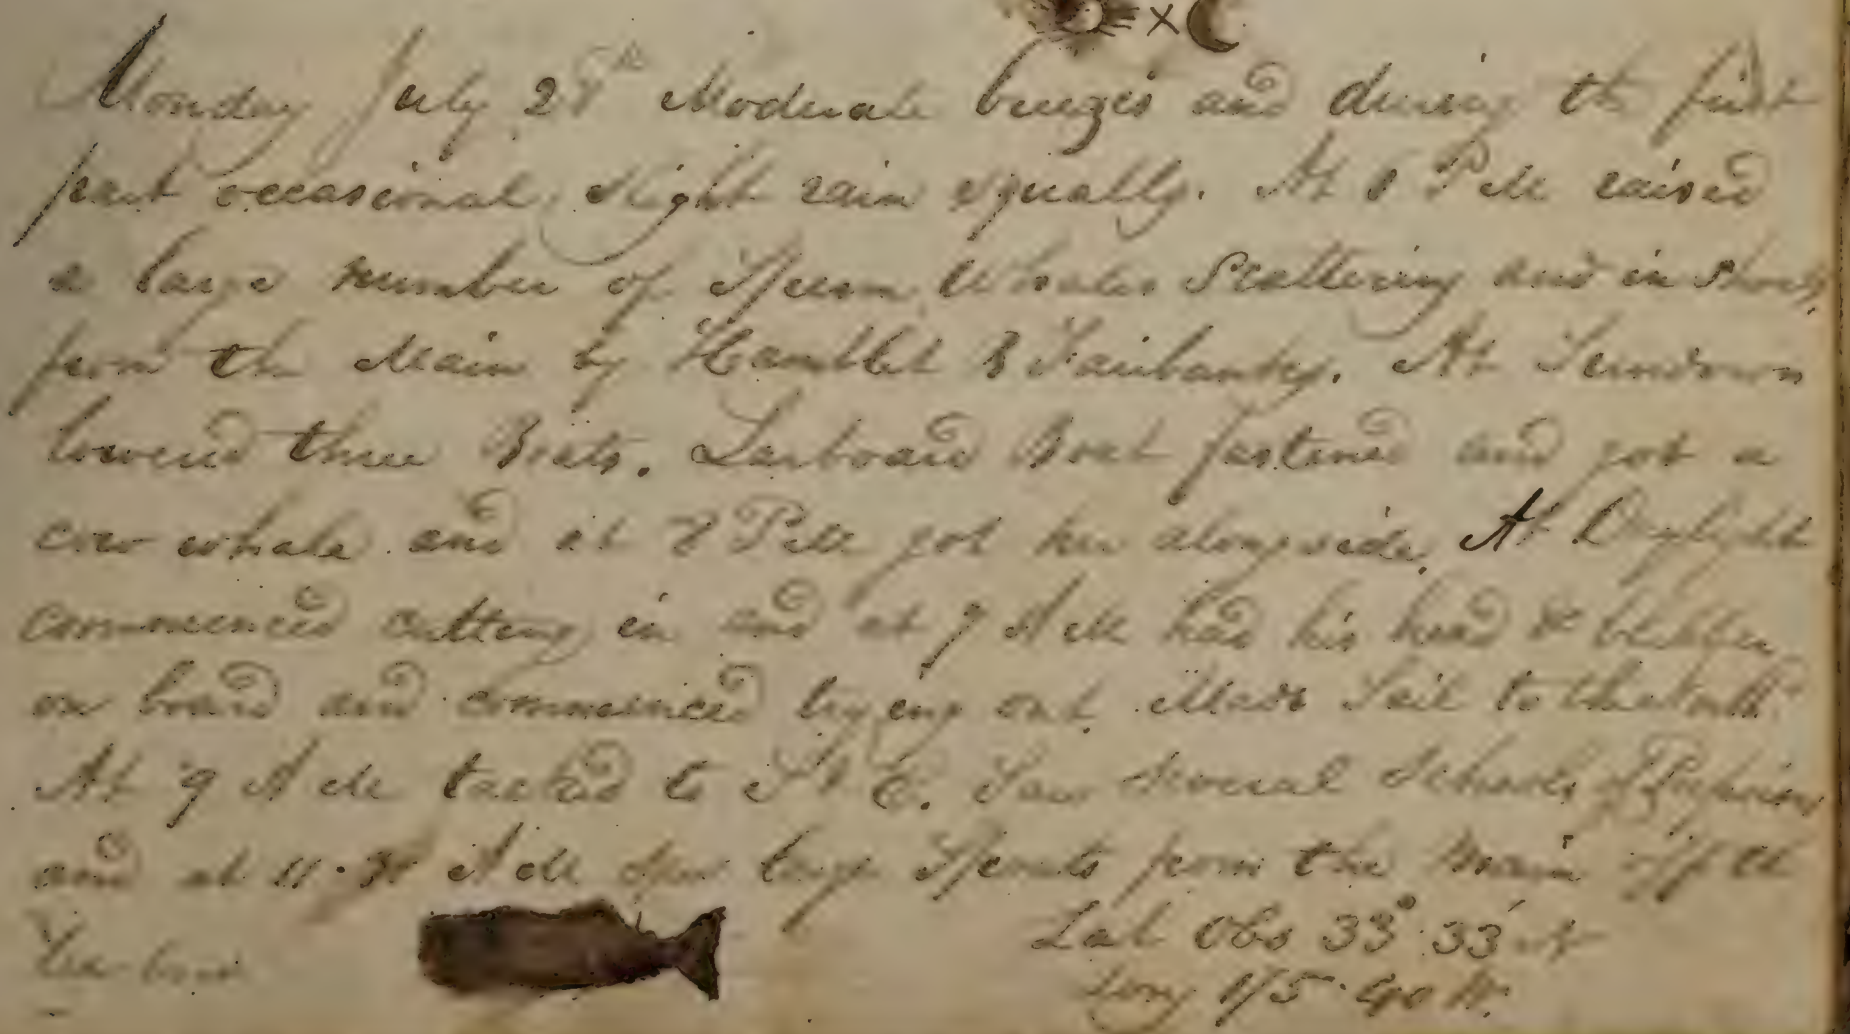 Monday July 28th Moderate breezes and during the first
part occasional slight rain squalls. At 5 PM raised
a large number of Sperm Whales Scattering and in Shoals
from the Main by Hamblet & Fairbanks. At Sundown
lowered three Boats. Larboard Boat fastened and got a
cow whale and at 8 PM got her alongside. At Daylight
commenced cutting in and at 7 AM had his head & blubber
on board and commenced trying out. Made Sail to the
At 9 AM tacked to S & E. Saw several Schools of Porpoises
and at 11.30 AM saw large Spouts from the Main off the
Lee bow
Lat Obs 33° 33' N
Long 175.40 W.